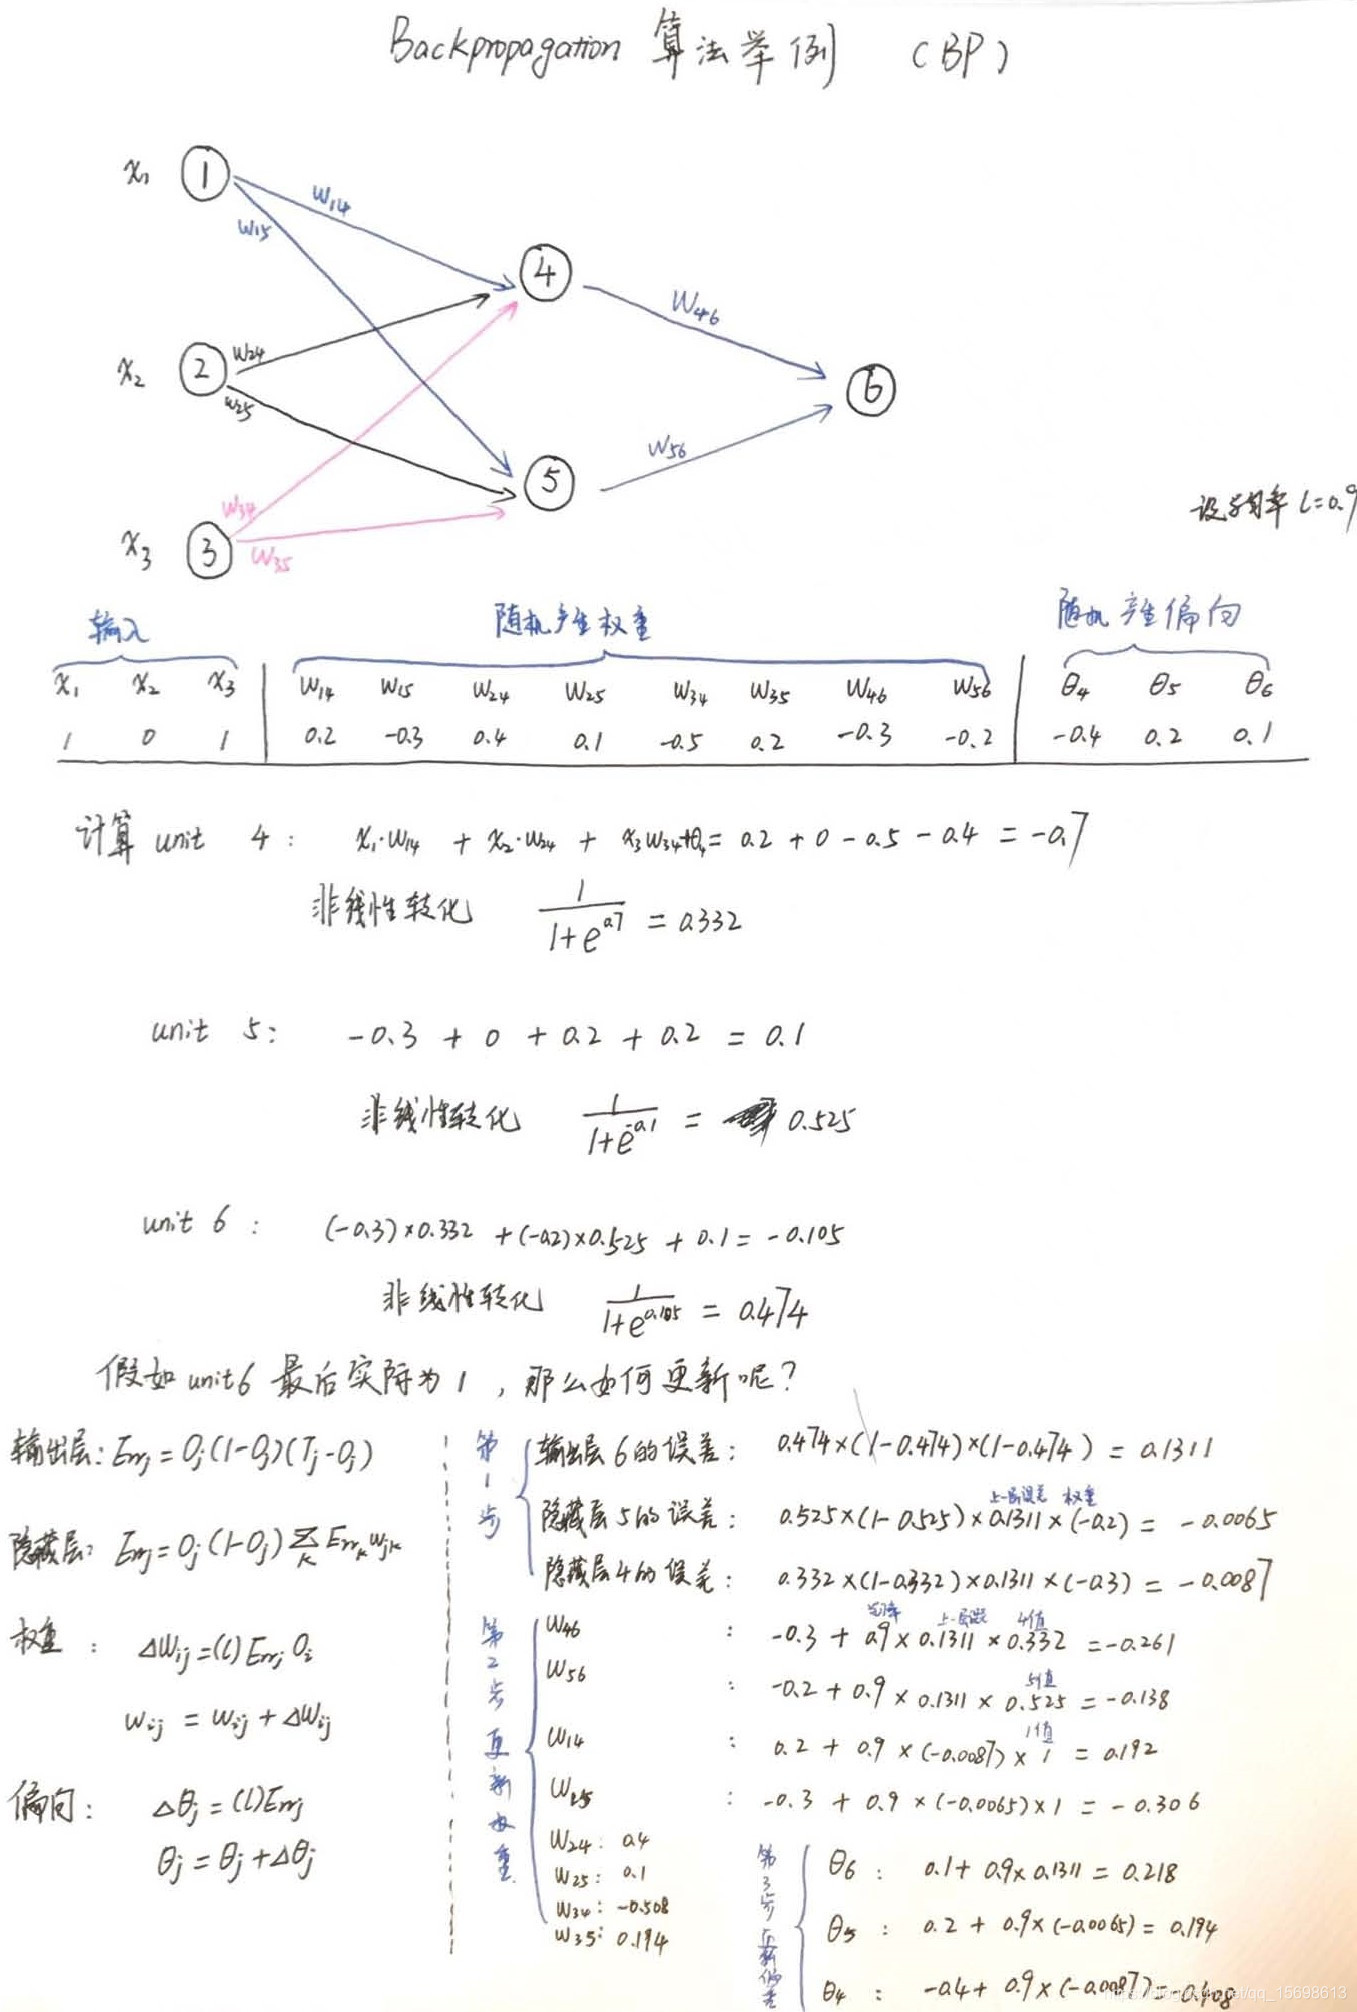 Backpropagation 算法举例 (BP)
x₁ ① w₁₄
w₁₅
④
w₄₆
x₂ ② w₂₄
w₂₅
⑥
w₅₆
⑤
w₃₄
x₃ ③ w₃₅
设学习率 l=0.9
输入 随机产生权重 随机产生偏向
x₁ x₂ x₃ w₁₄ w₁₅ w₂₄ w₂₅ w₃₄ w₃₅ w₄₆ w₅₆ θ₄ θ₅ θ₆
1 0 1 0.2 -0.3 0.4 0.1 -0.5 0.2 -0.3 -0.2 -0.4 0.2 0.1
计算 unit 4: x₁·w₁₄ + x₂·w₂₄ + x₃w₃₄+θ₄= 0.2 + 0 - 0.5 - 0.4 = -0.7
非线性转化 1/(1+e^0.7) = 0.332
unit 5: -0.3 + 0 + 0.2 + 0.2 = 0.1
非线性转化 1/(1+e^-0.1) = 0.525
unit 6: (-0.3)×0.332 +(-0.2)×0.525 + 0.1 = -0.105
非线性转化 1/(1+e^0.105) = 0.474
假如 unit6 最后实际为 1 , 那么如何更新呢?
输出层: Errⱼ = Oⱼ(1-Oⱼ)(Tⱼ-Oⱼ)
隐藏层: Errⱼ = Oⱼ(1-Oⱼ) Σₖ Errₖ wⱼₖ
权重: Δwᵢⱼ=(l) Errⱼ Oᵢ
wᵢⱼ = wᵢⱼ + Δwᵢⱼ
偏向: Δθⱼ = (l)Errⱼ
θⱼ = θⱼ + Δθⱼ
第1步
输出层6的误差: 0.474×(1-0.474)×(1-0.474) = 0.1311
上一层误差 权重
隐藏层5的误差: 0.525×(1-0.525)×0.1311×(-0.2) = -0.0065
隐藏层4的误差: 0.332×(1-0.332)×0.1311×(-0.3) = -0.0087
第2步 更新权重
上一层误差 4值
w₄₆ : -0.3 + 0.9 × 0.1311 × 0.332 = -0.261
5值
w₅₆ : -0.2 + 0.9 × 0.1311 × 0.525 = -0.138
1值
w₁₄ : 0.2 + 0.9 × (-0.0087) × 1 = 0.192
w₁₅ : -0.3 + 0.9 × (-0.0065)×1 = -0.306
w₂₄: 0.4
w₂₅: 0.1
w₃₄: -0.508
w₃₅: 0.194
第3步 更新偏差
θ₆ : 0.1+ 0.9×0.1311 = 0.218
θ₅ : 0.2 + 0.9×(-0.0065) = 0.194
θ₄ : -0.4+ 0.9×(-0.0087)= -0.408